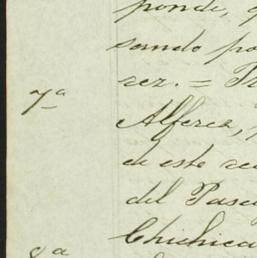 ponde, q
sando po
rez. = Tr
7ª
Alferez, p
en este re
del Pase
Chichica
8ª